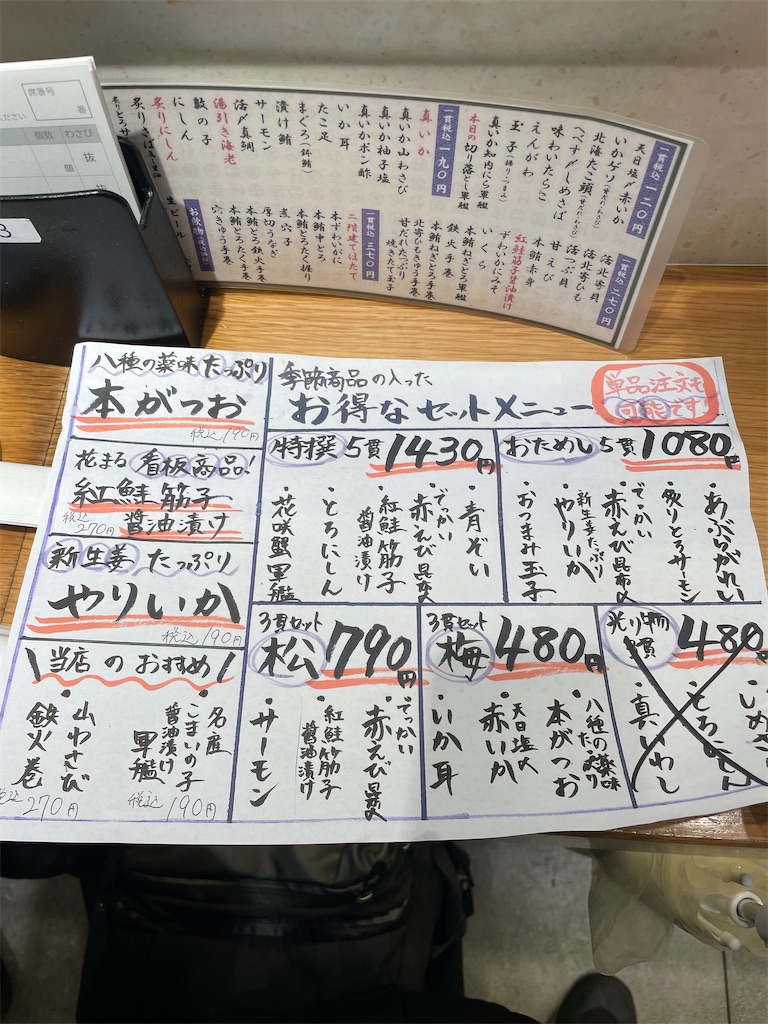 席番号
番
個数
わさび
個
抜
3
一貫税込 一二〇円
天日塩〆赤いか
いかゲソ(甘だれ・わさび)
北海たこ頭(甘だれ・わさび)
へべす〆しめさば
味わいたらこ
えんがわ
玉子(握り・つまみ)
本日の切り落とし軍艦
真いか知内にら軍艦
一貫税込 一九〇円
真いか
真いか山わさび
真いか柚子塩
真いかポン酢
いか耳
たこ足
まぐろ(鉢鮪)
漬け鮪
サーモン
活〆真鯛
湯引き海老
数の子
にしん
炙りにしん
一貫税込 二七〇円
活北寄貝
活北寄ひも
活つぶ貝
甘えび
本鮪赤身
紅鮭筋子醤油漬け
ずわいかにみそ
いくら
鉄火手巻
本鮪ねぎとろ軍艦
本鮪ねぎとろ手巻
北寄ひもきゅう手巻
甘だれたっぷり
焼きたて玉子
一貫税込 三七〇円
二階建てほたて
本ずわいがに
本鮪中とろ
本鮪とろたく握り
厚切りうなぎ
煮穴子
本鮪とろ鉄火手巻
本鮪とろたく手巻
穴きゅう手巻
お飲物
生ビール
八種の薬味たっぷり
本がつお
税込190円
花まる看板商品!
紅鮭筋子
醤油漬け
税込
270円
新生姜たっぷり
やりいか
税込190円
\当店のおすすめ/
・名産
こまいの子
醤油漬け
軍艦
税込190円
・山わさび
鉄火巻
税込
270円
季節商品の入った
お得なセットメニュー
単品注文も
可能です
特撰5貫1430円
・青ぞい
・でっかい
赤えび昆布〆
・紅鮭筋子
醤油漬け
・とろにしん
・花咲蟹軍艦
おためし5貫1080円
・あぶらがれい
・炙りとろサーモン
・でっかい
赤えび昆布〆
・新生姜たっぷり
やりいか
・おつまみ玉子
3貫セット
松790円
・でっかい
赤えび昆布〆
・紅鮭筋子
醤油漬け
・サーモン
3貫セット
梅480円
・八種の薬味
たっぷり
本がつお
・天日塩〆
赤いか
・いか耳
光り物
3貫
480円
・しめさば
・とろにしん
・真いわし